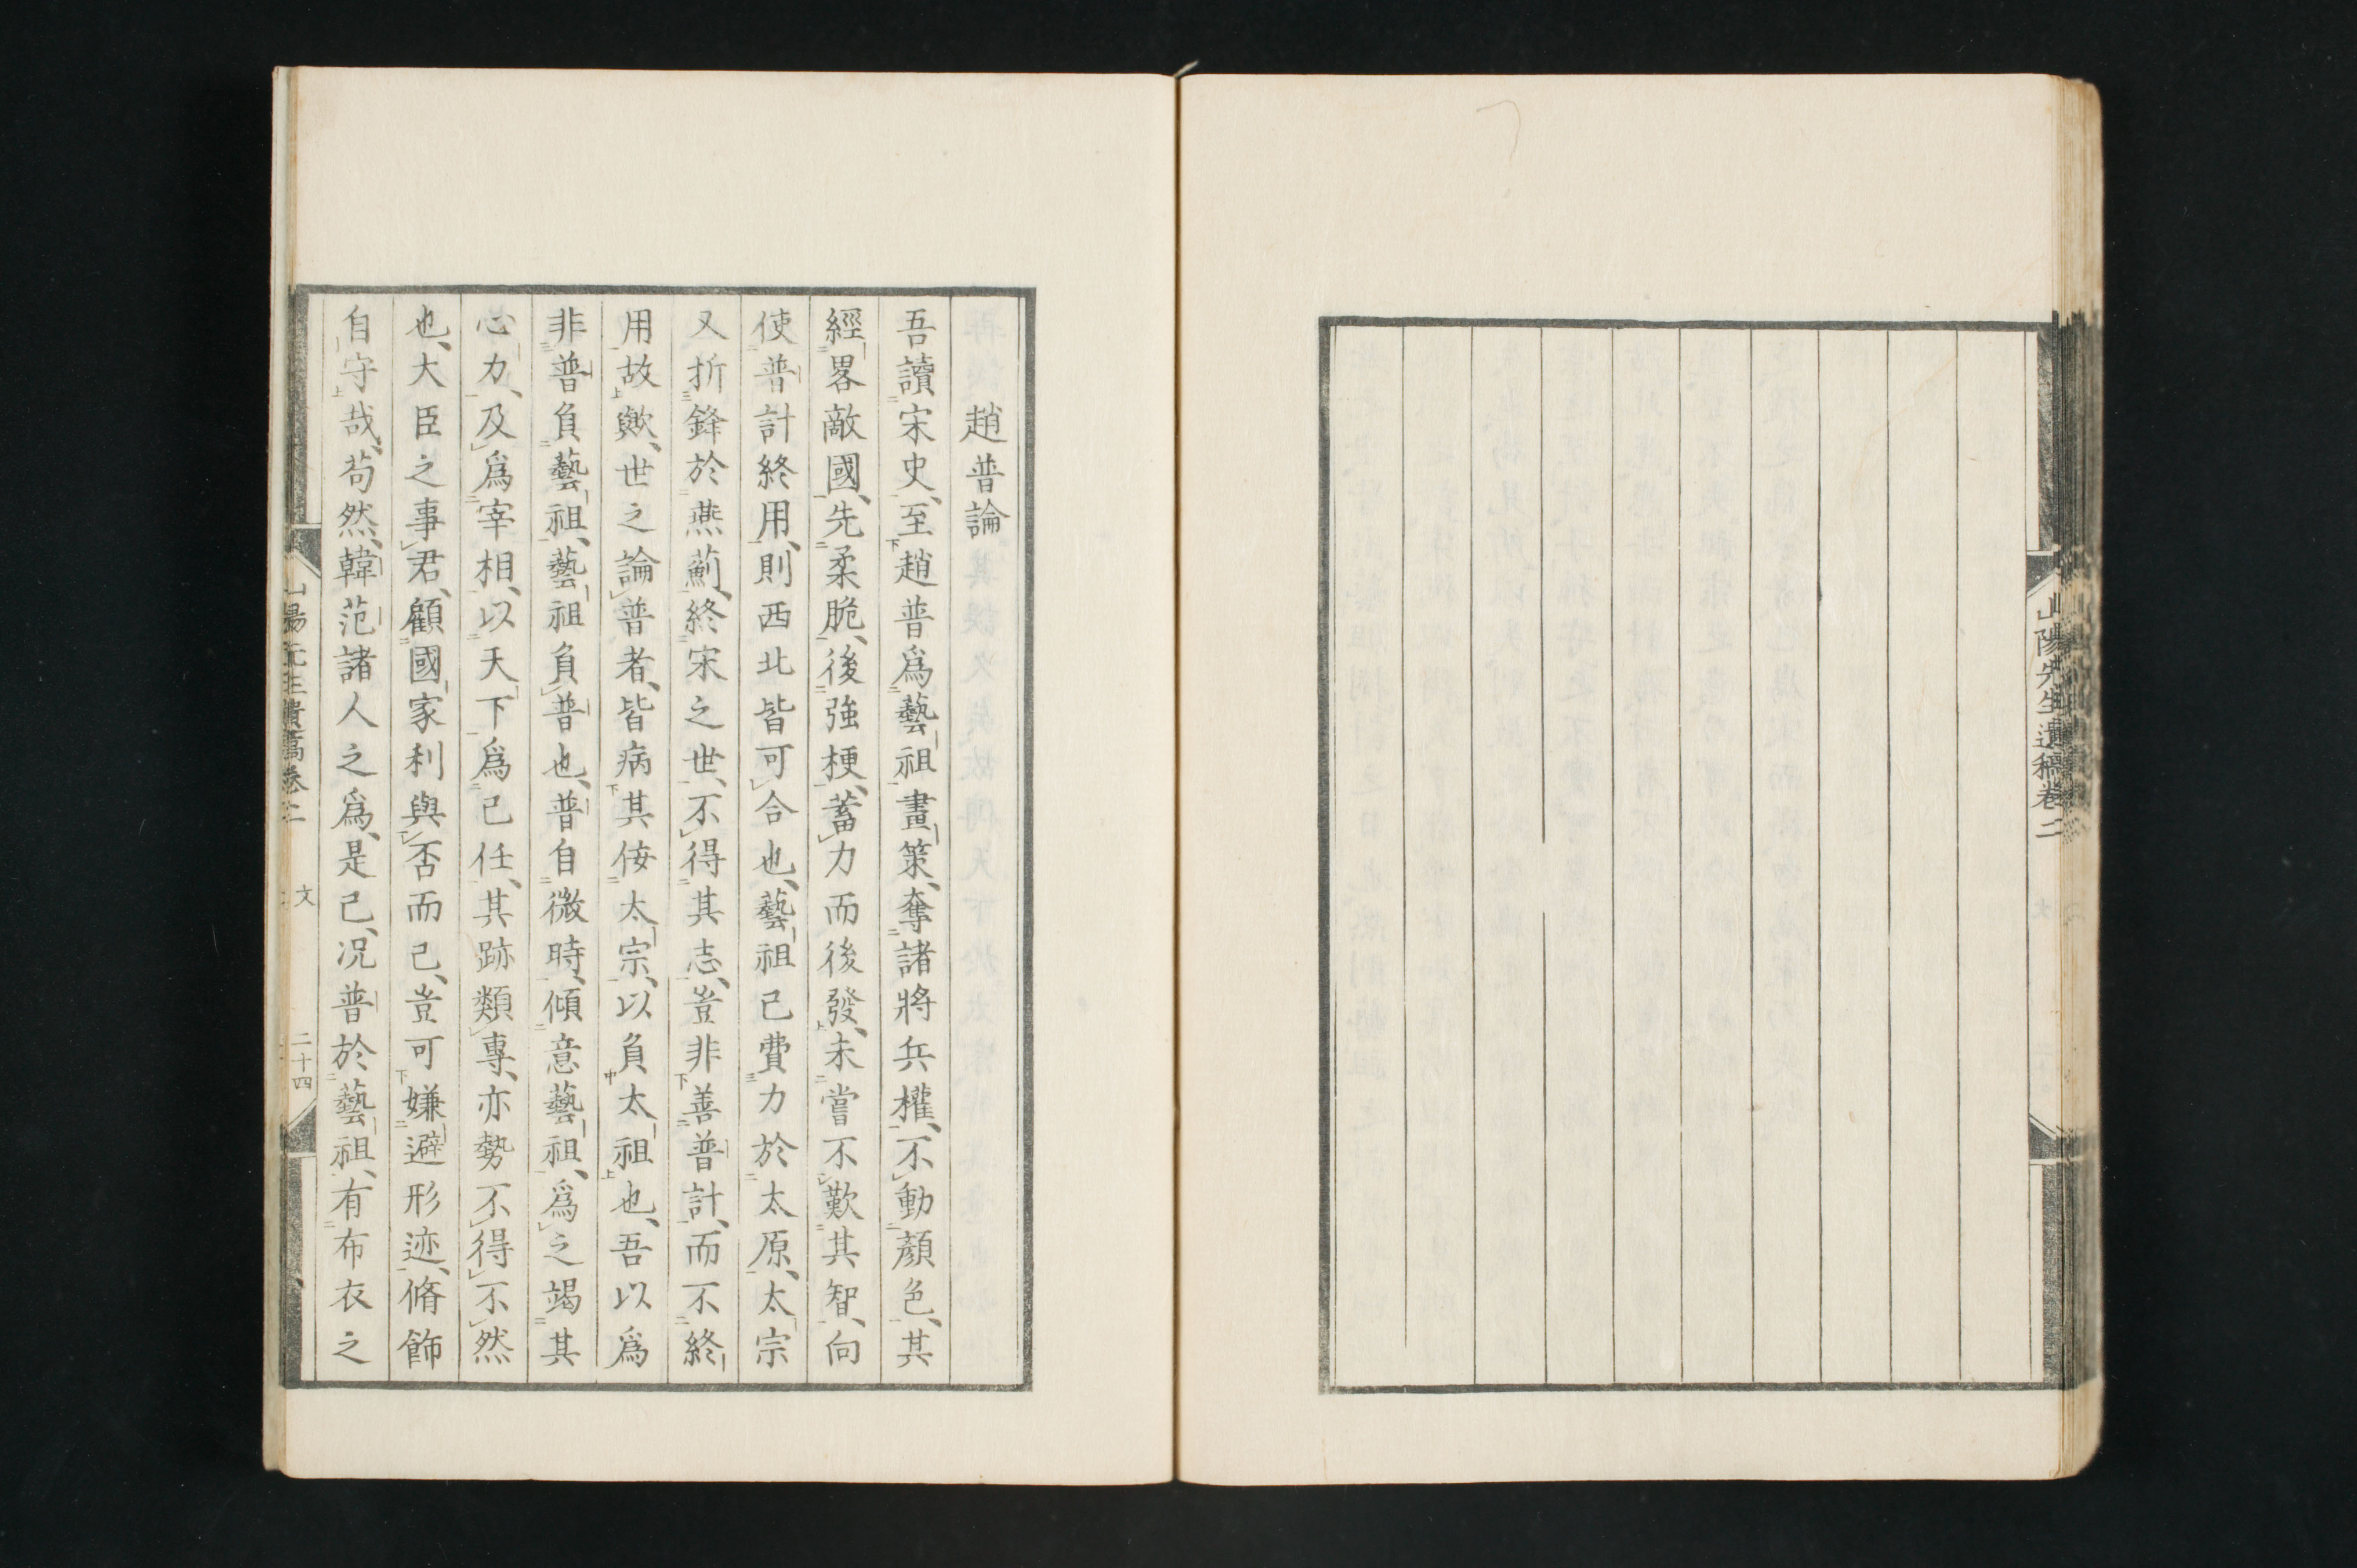 山陽先生遺稿卷二
趙普論
吾讀宋史、至趙普爲藝祖畫策、奪諸將兵權、不動顏色、其
經畧敵國、先柔脆、後強梗、蓄力而後發、未嘗不歎其智、向
使普計終用、則西北皆可合也、藝祖已費力於太原、太宗
又折鋒於燕薊、終宋之世、不得其志、豈非善普計、而不終
用故歟、世之論普者、皆病其侫太宗、以負太祖也、吾以爲
非普負藝祖、藝祖負普也、普自微時、傾意藝祖、爲之竭其
心力、及爲宰相、以天下爲己任、其跡類專、亦勢不得不然
也、大臣之事君、顧國家利與否而已、豈可嫌避形迹、脩飾
自守哉、苟然、韓范諸人之爲、是已、况普於藝祖、有布衣之
山陽先生遺稿卷二 文 二十四